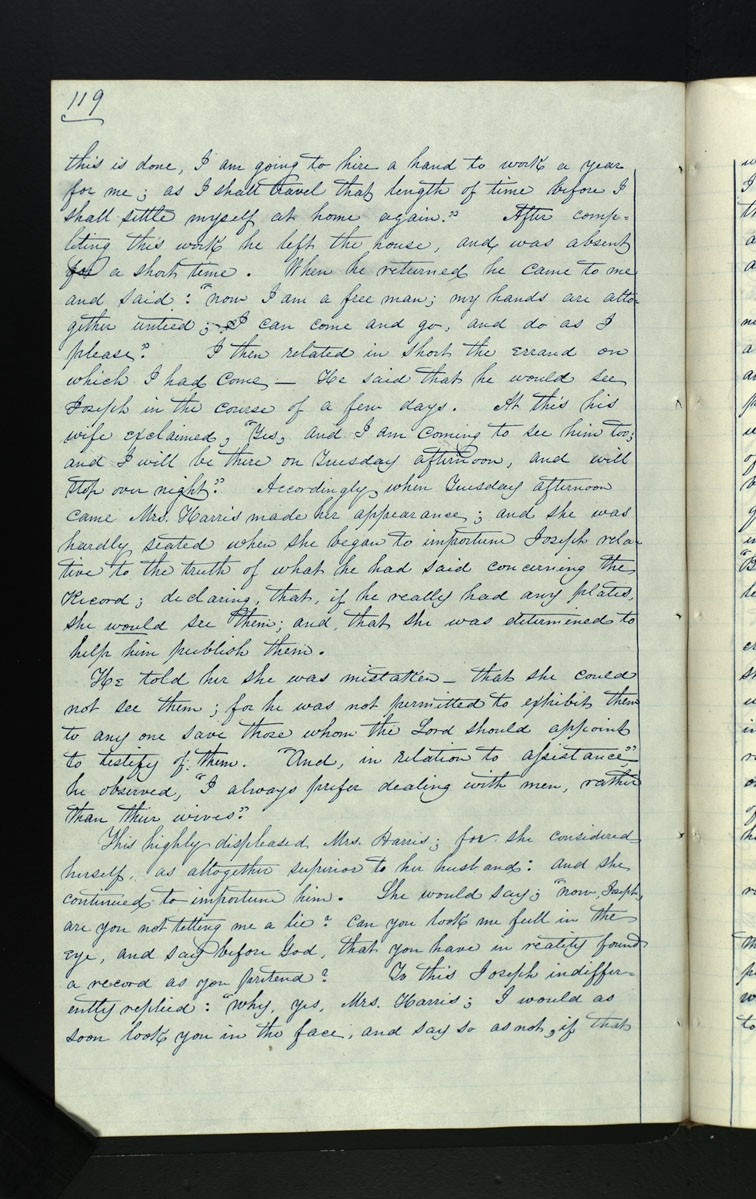 119
this is done, I am going to hire a hand to work a year
for me; as I shall travel that length of time before I
shall settle myself at home again." After comp-
liting this work he left the house, and was absent
for a short time. When he returned he came to me
and said: "now I am a free man; my hands are alto-
gether untied; I can come and go, and do as I
please". I then related in short the errand on
which I had come— He said that he would see
Joseph in the course of a few days. At this his
wife exclaimed, "Yes, and I am coming to see him too;
and I will be there on Tuesday afternoon, and will
stop over night". Accordingly, when Tuesday afternoon
came Mrs. Harris made her appearance; and she was
hardly seated when she began to importune Joseph rela-
tive to the truth of what he had said concerning the
Record; declaring, that, if he really had any plates,
she would see them; and, that she was determined to
help him publish them.
He told her she was mistaken— that she could
not see them; for he was not permitted to exhibit them
to any one save those whom the Lord should appoint
to testify of them. "And, in relation to assistance,"
he observed, "I always prefer dealing with men, rather
than their wives".
This highly displeased Mrs. Harris; for she considered
herself, as altogether superior to her husband: and she
continued to importune him. She would say; "now, Joseph,
are you not telling me a lie? can you look me full in the
eye, and say before God, that you have in reality found
a record as you pretend? To this Joseph indiffer-
ently replied: "why, yes, Mrs. Harris; I would as
soon look you in the face, and say so as not, if that